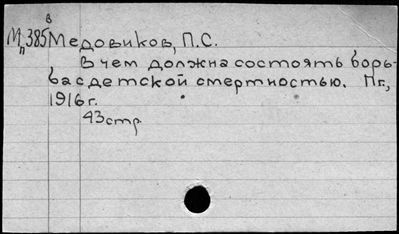 в
М 385 Медовиков, П.С.
п
В чем должна состоять борь-
ба с детской смертностью. Пг.,
1916 г.
43 стр.